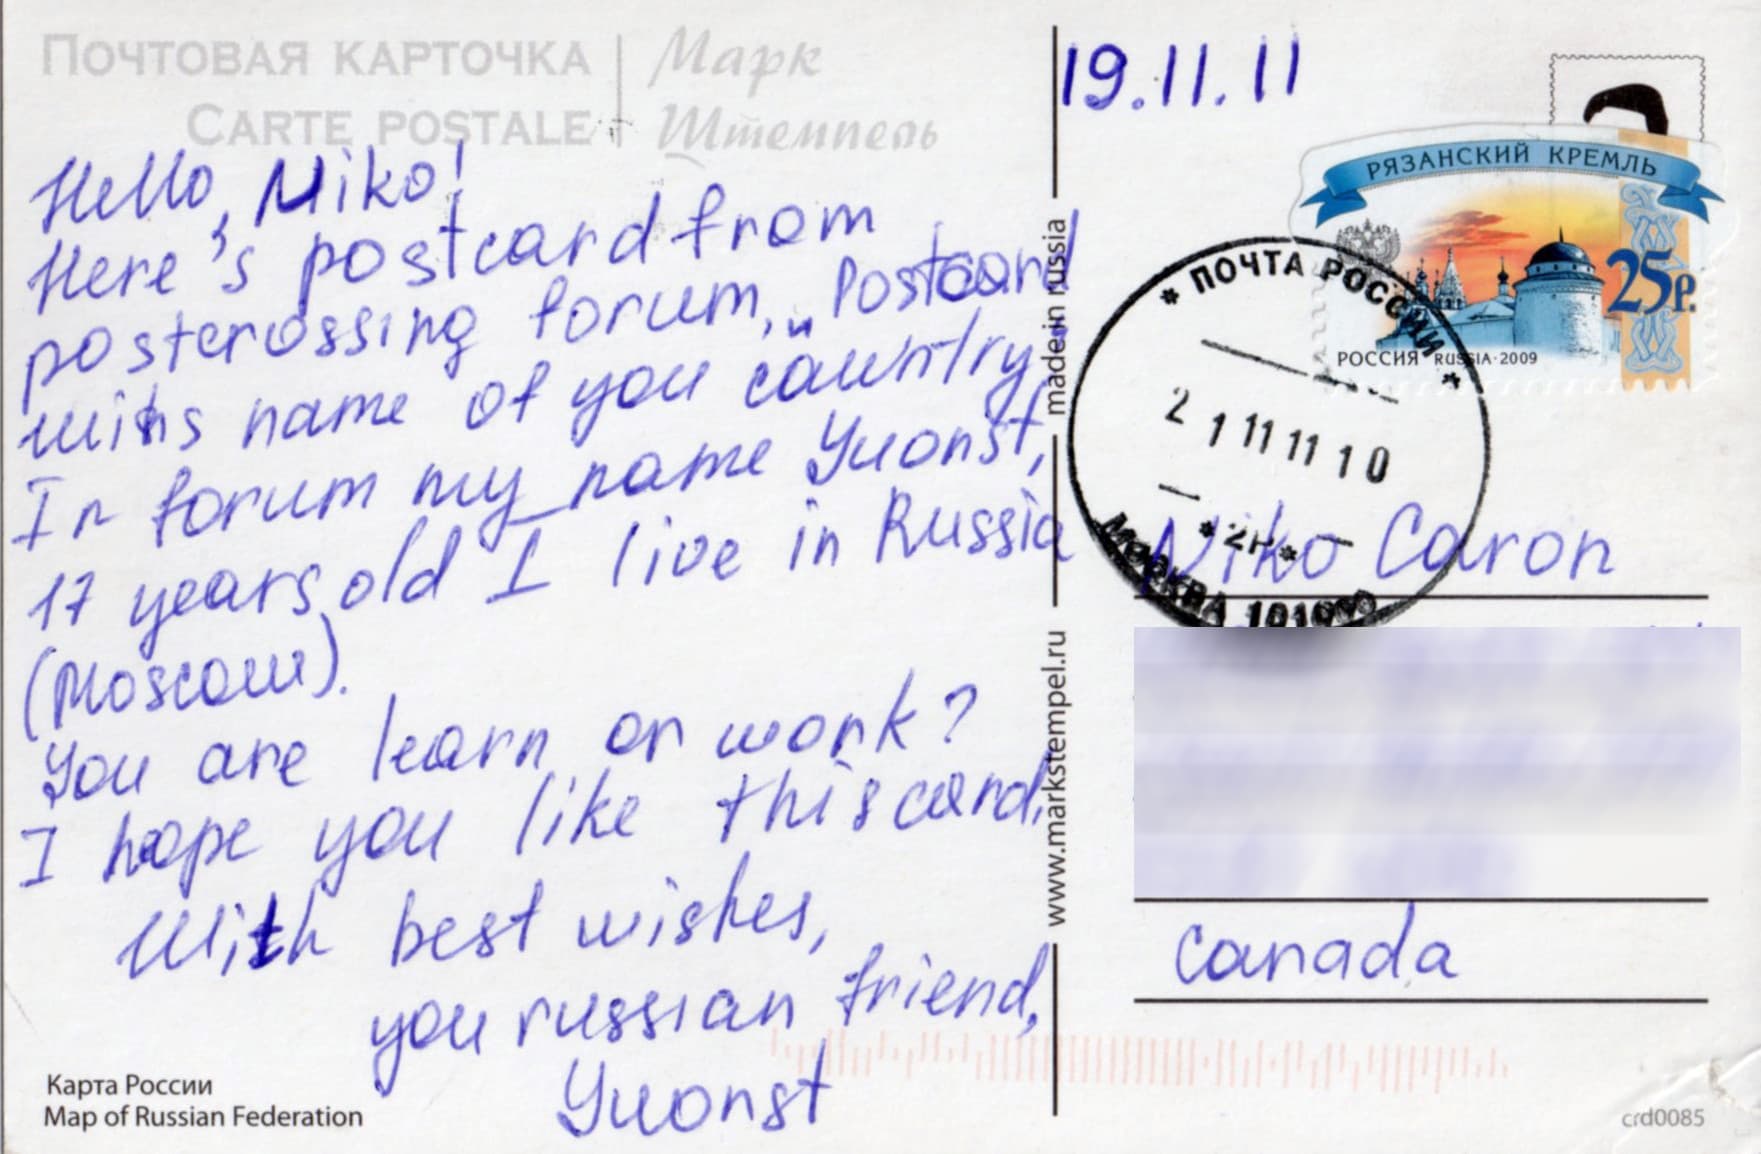 ПОЧТОВАЯ КАРТОЧКА
CARTE POSTALE
Марк
Штемпель
19.11.11
Hello, Niko!
Here's postcard from
postcrossing forum, „Postcard
withs name of you country"
In forum my name Yuonst,
17 years old I live in Russia
(Moscow).
You are learn or work?
I hope you like this card.
With best wishes,
you russian friend,
Yuonst
Карта России
Map of Russian Federation
made in russia
www.markstempel.ru
РЯЗАНСКИЙ КРЕМЛЬ
25р.
РОССИЯ RUSSIA·2009
* ПОЧТА РОССИИ *
21 11 11 10
МОСКВА
Niko Caron
Canada
crd0085